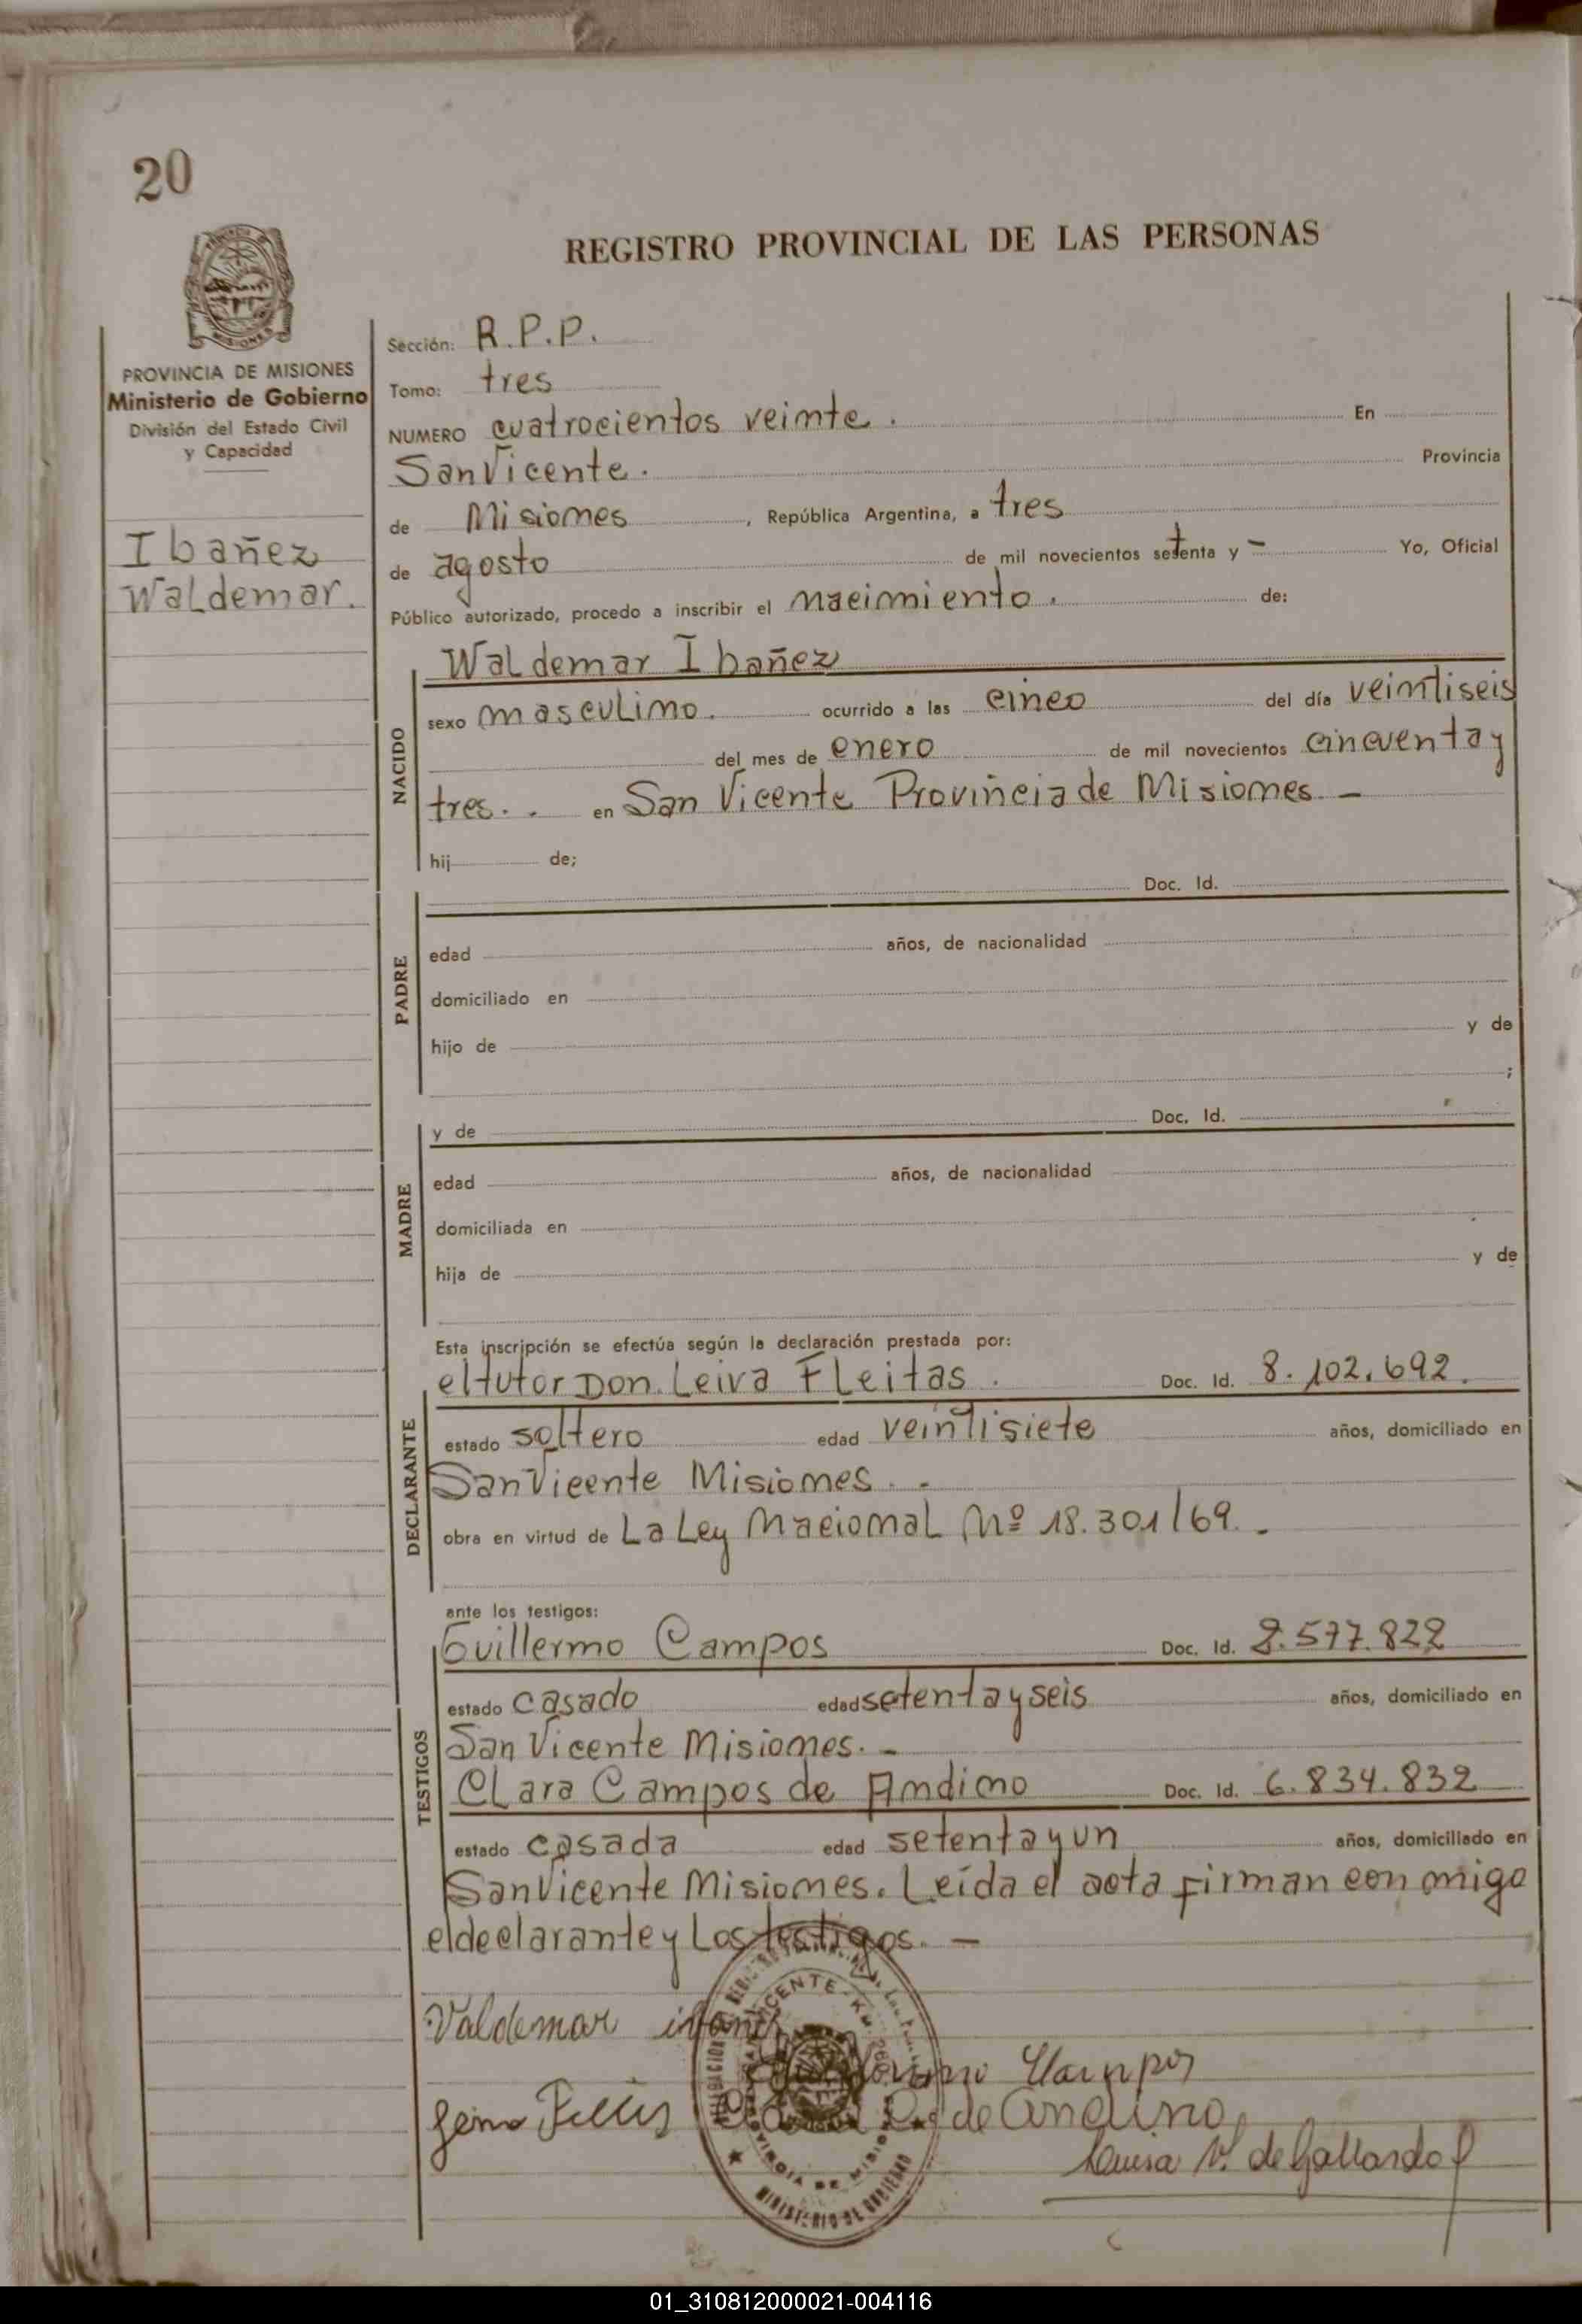 20
REGISTRO PROVINCIAL DE LAS PERSONAS
PROVINCIA DE MISIONES
Ministerio de Gobierno
División del Estado Civil
y Capacidad
Ibañez
Waldemar.
Sección: R.P.P.
Tomo: tres
NUMERO cuatrocientos veinte. En
San Vicente. Provincia
de Misiones, República Argentina, a tres
de agosto de mil novecientos setenta y - Yo, Oficial
Público autorizado, procedo a inscribir el nacimiento. de:
NACIDO
Waldemar Ibañez
sexo masculino. ocurrido a las cinco del día veintiseis
del mes de enero de mil novecientos cincuenta y
tres. . en San Vicente Provincia de Misiones -
hij de;
PADRE
Doc. Id.
edad años, de nacionalidad
domiciliado en
hijo de y de
;
MADRE
y de Doc. Id.
edad años, de nacionalidad
domiciliada en
hija de y de
Esta inscripción se efectúa según la declaración prestada por:
DECLARANTE
el tutor Don. Leiva Fleitas. Doc. Id. 8.102.692.
estado soltero edad veintisiete años, domiciliado en
San Vicente Misiones. .
obra en virtud de La Ley Nacional Nº 18.301/69. -
ante los testigos:
TESTIGOS
Guillermo Campos Doc. Id. 2.577.822
estado casado edad setenta y seis años, domiciliado en
San Vicente Misiones. -
Clara Campos de Andino Doc. Id. 6.834.832
estado casada edad setenta y un años, domiciliado en
San Vicente Misiones. Leída el acta firman conmigo
el declarante y Los testigos. -
Valdemar
Campos
de Andino
Luisa V. de Gallardo
MINISTERIO DE GOBIERNO
01_310812000021-004116